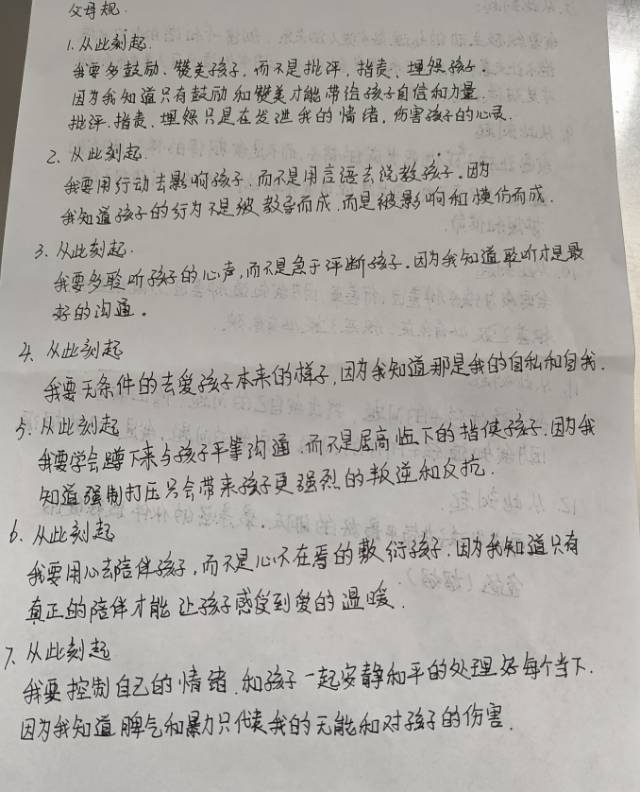 父母规.
1. 从此刻起.
我要多鼓励、赞美孩子,而不是批评,指责、埋怨孩子.
因为我知道只有鼓励和赞美才能带给孩子自信和力量.
批评.指责、埋怨只是在发泄我的情绪,伤害孩子的心灵.
2、从此刻起.
我要用行动去影响孩子,而不是用言语去说教孩子.因为
我知道孩子的行为不是被教导而成.而是被影响和模仿而成.
3. 从此刻起.
我要多聆听孩子的心声,而不是急于评断孩子.因为我知道聆听才是最
好的沟通。
4、从此刻起
我要无条件的去爱孩子本来的样子,因为我知道那是我的自私和自我.
5. 从此刻起
我要学会蹲下来与孩子平等沟通.而不是居高临下的指使孩子.因为我
知道强制打压只会带来孩子更强烈的叛逆和反抗.
6. 从此刻起
我要用心去陪伴孩子,而不是心不在焉的敷衍孩子.因为我知道只有
真正的陪伴才能让孩子感受到爱的温暖.
7. 从此刻起
我要控制自己的情绪.和孩子一起安静和平的处理好每个当下.
因为我知道脾气和暴力只代表我的无能和对孩子的伤害.